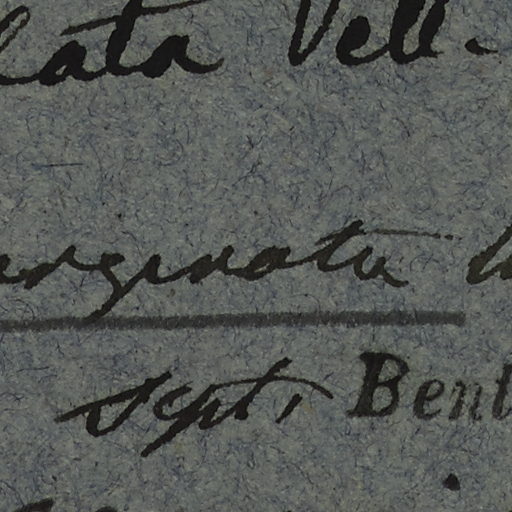 lata Vell-
arginata
Sept, Bent